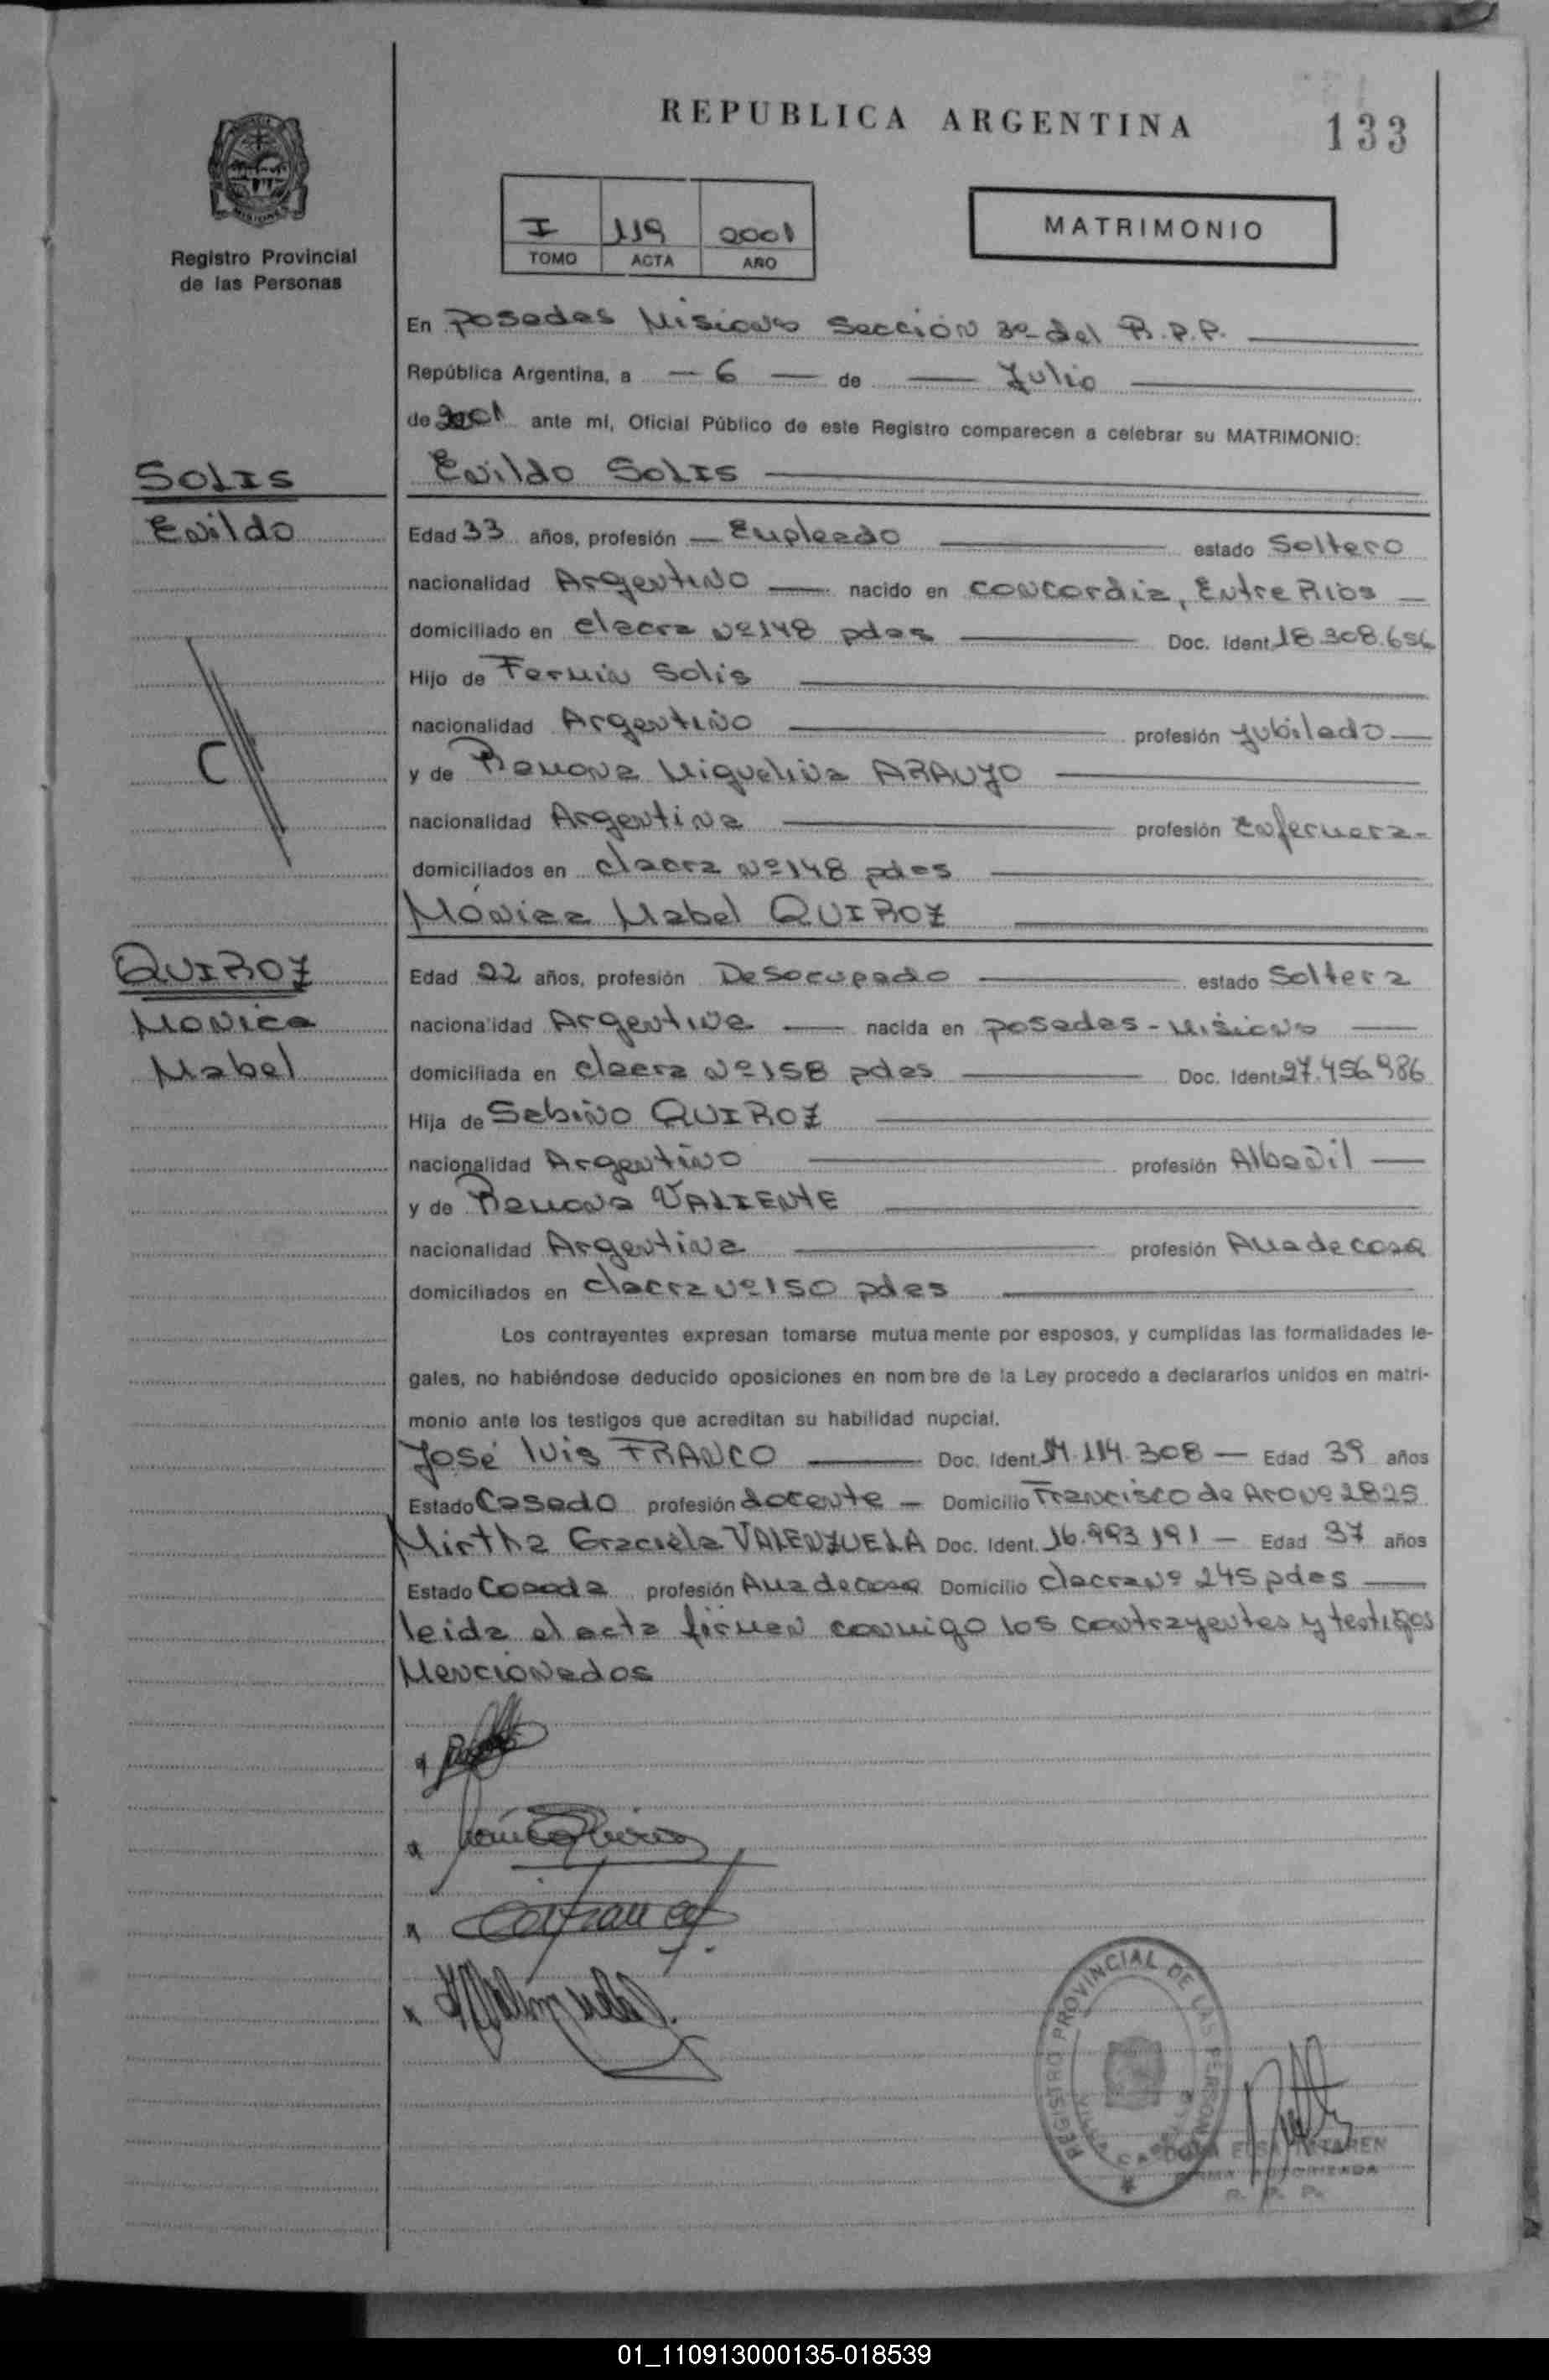 REPUBLICA ARGENTINA
133
Registro Provincial
de las Personas
I 119 2001
TOMO ACTA AÑO
MATRIMONIO
En Posadas Misiones Sección 3º del R.P.P.
República Argentina, a 6 de Julio
de 2001 ante mí, Oficial Público de este Registro comparecen a celebrar su MATRIMONIO:
SOLIS
Enildo
Enildo SOLIS
Edad 33 años, profesión Empleado estado Soltero
nacionalidad Argentino nacido en Concordia, Entre Rios
domiciliado en chacra Nº 148 pdas Doc. Ident. 18.308.656
Hijo de Fermin Solis
nacionalidad Argentino profesión Jubilado
y de Ramona Miguelina ARAUJO
nacionalidad Argentina profesión Enfermera
domiciliados en chacra Nº 148 pdas
Mónica Mabel QUIROZ
QUIROZ
Monica
Mabel
Edad 22 años, profesión Desocupado estado Soltera
nacionalidad Argentina nacida en posadas - Misiones
domiciliada en chacra Nº 158 pdas Doc. Ident. 27.456.986
Hija de Sabino QUIROZ
nacionalidad Argentino profesión Albañil
y de Ramona VALIENTE
nacionalidad Argentina profesión Ama de casa
domiciliados en chacra Nº 150 pdas
Los contrayentes expresan tomarse mutuamente por esposos, y cumplidas las formalidades le-
gales, no habiéndose deducido oposiciones en nombre de la Ley procedo a declararlos unidos en matri-
monio ante los testigos que acreditan su habilidad nupcial.
José luis FRANCO Doc. Ident. 14.114.308 Edad 39 años
Estado Casado profesión docente Domicilio Francisco de Aro Nº 2825
Mirtha Graciela VALENZUELA Doc. Ident. 16.993.191 Edad 37 años
Estado Casada profesión Ama de casa Domicilio chacra Nº 245 pdas
leida el acta firman conmigo los contrayentes y testigos
Mencionados
REGISTRO PROVINCIAL DE LAS PERSONAS
FIRMA AUTORIZADA
R. P. P.
01_110913000135-018539